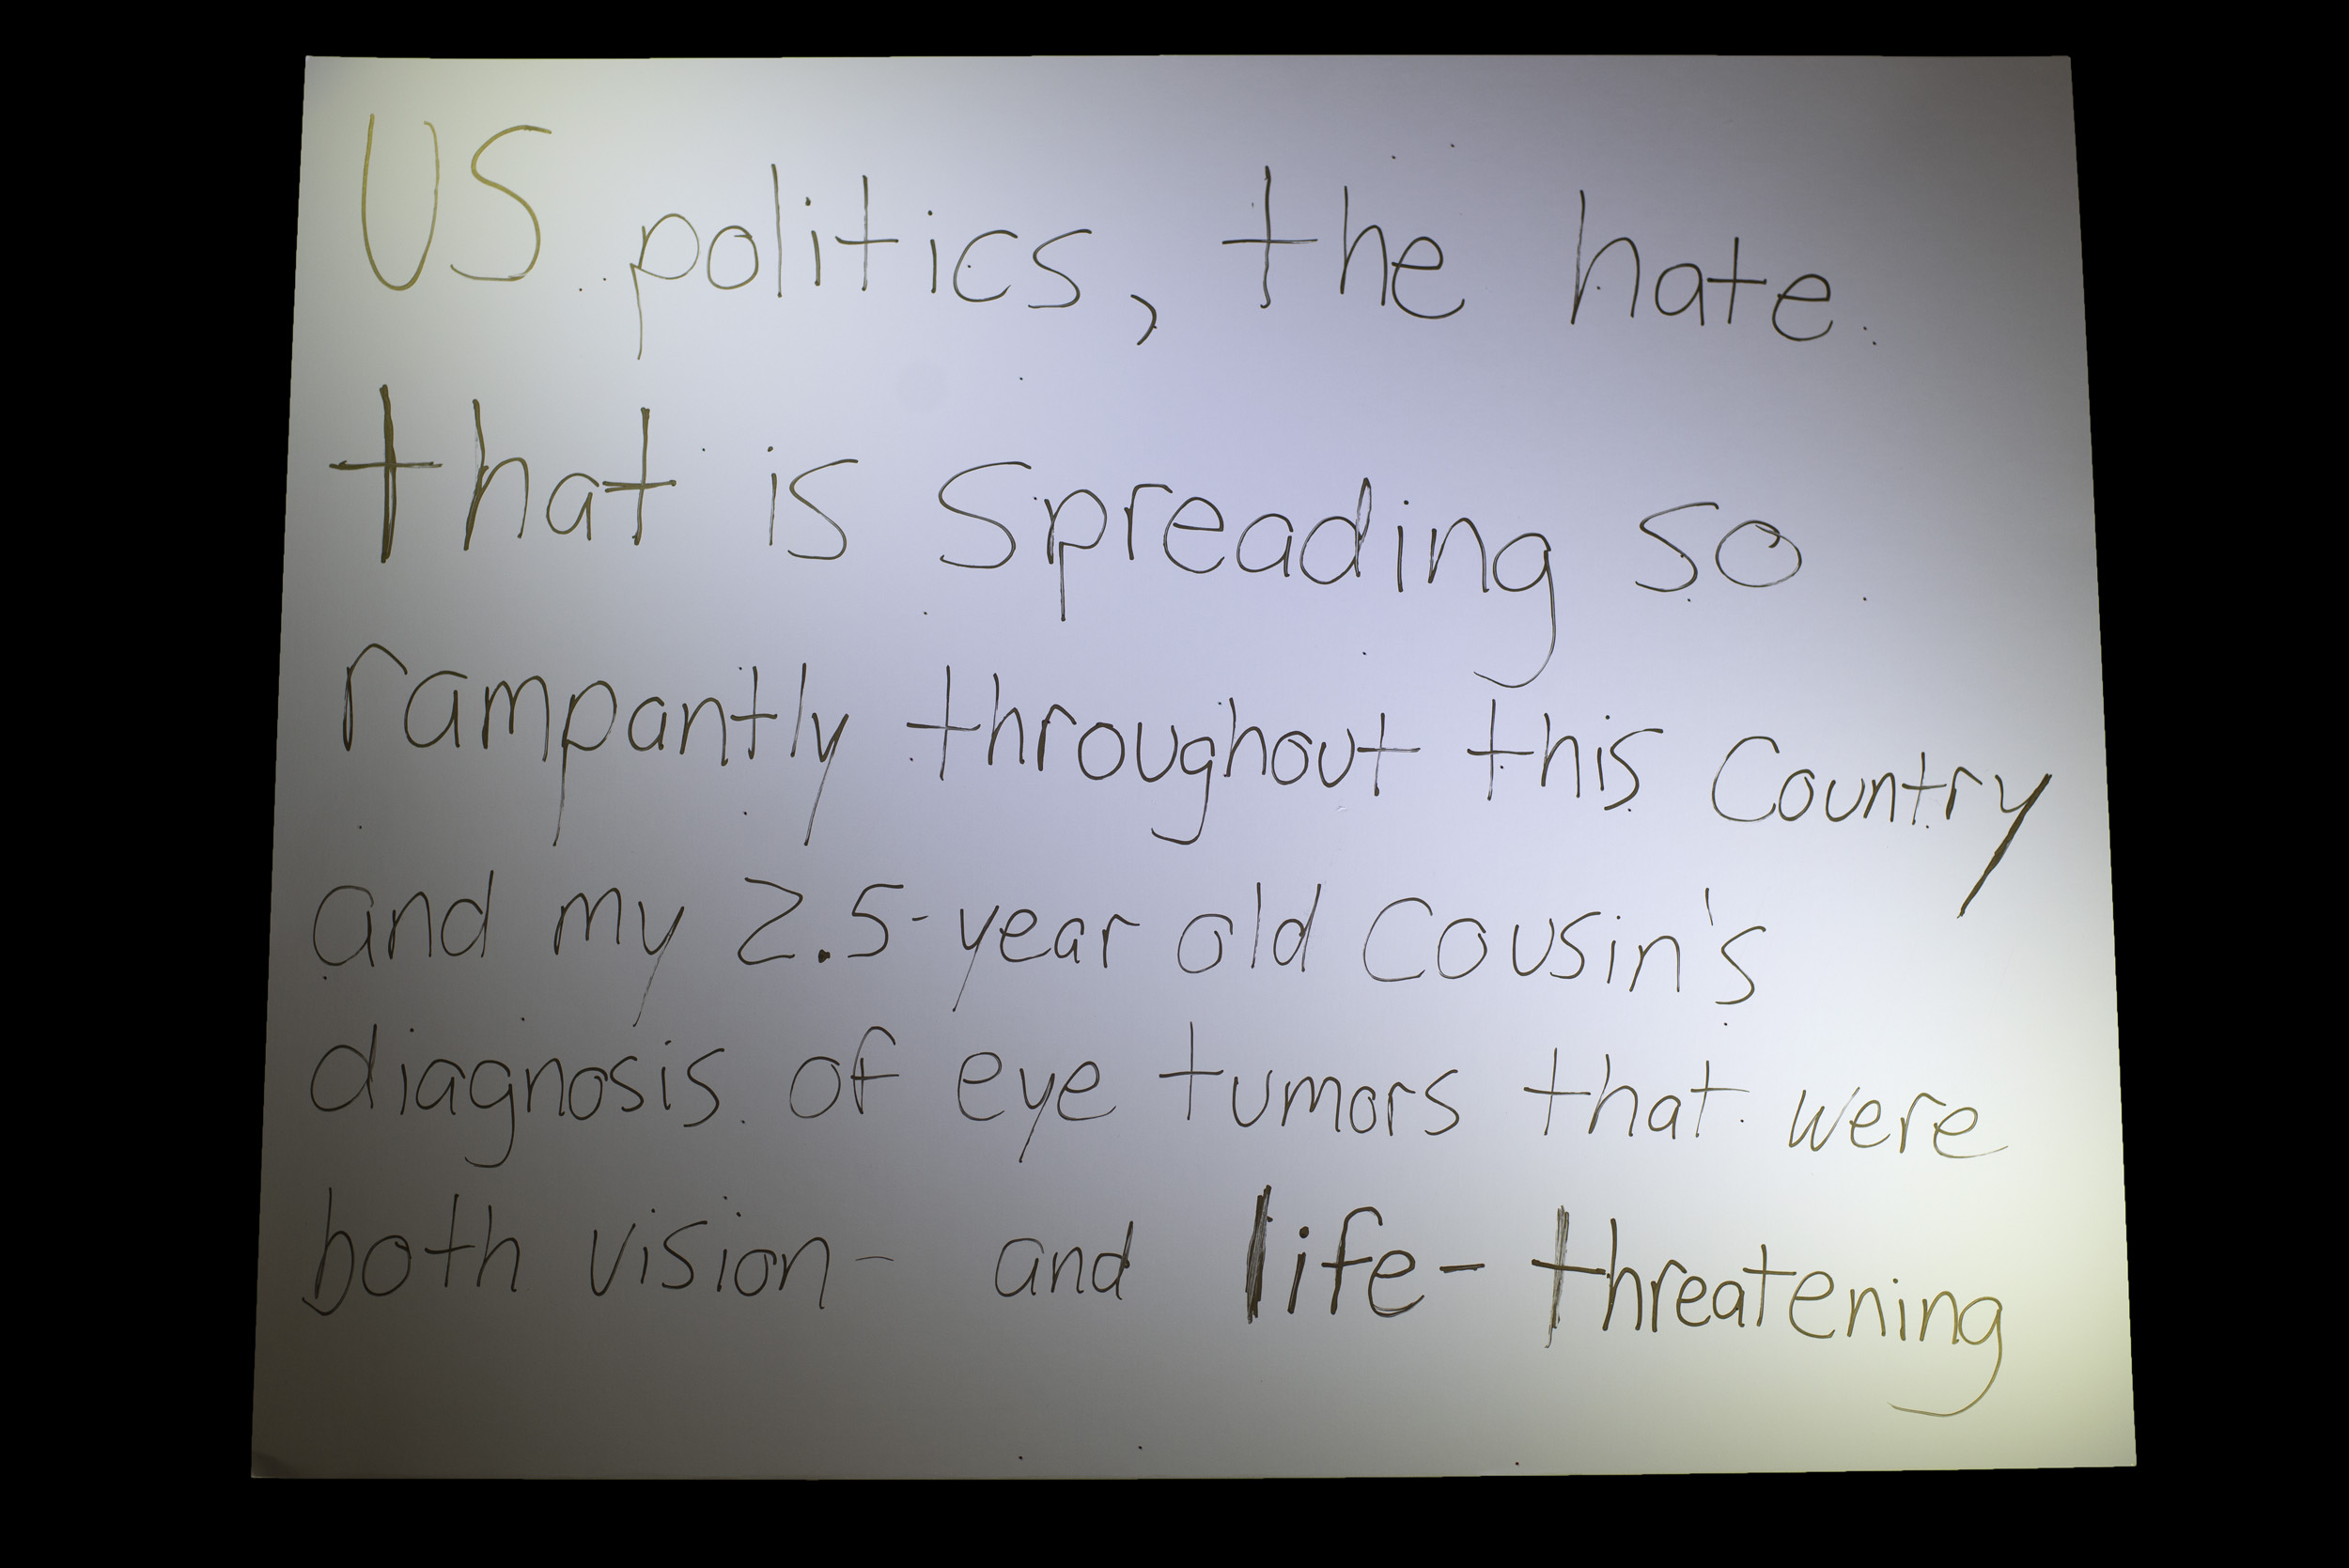 US politics, the hate
that is spreading so
rampantly throughout this Country
and my 2.5-year old Cousin's
diagnosis of eye tumors that were
both vision- and life-threatening